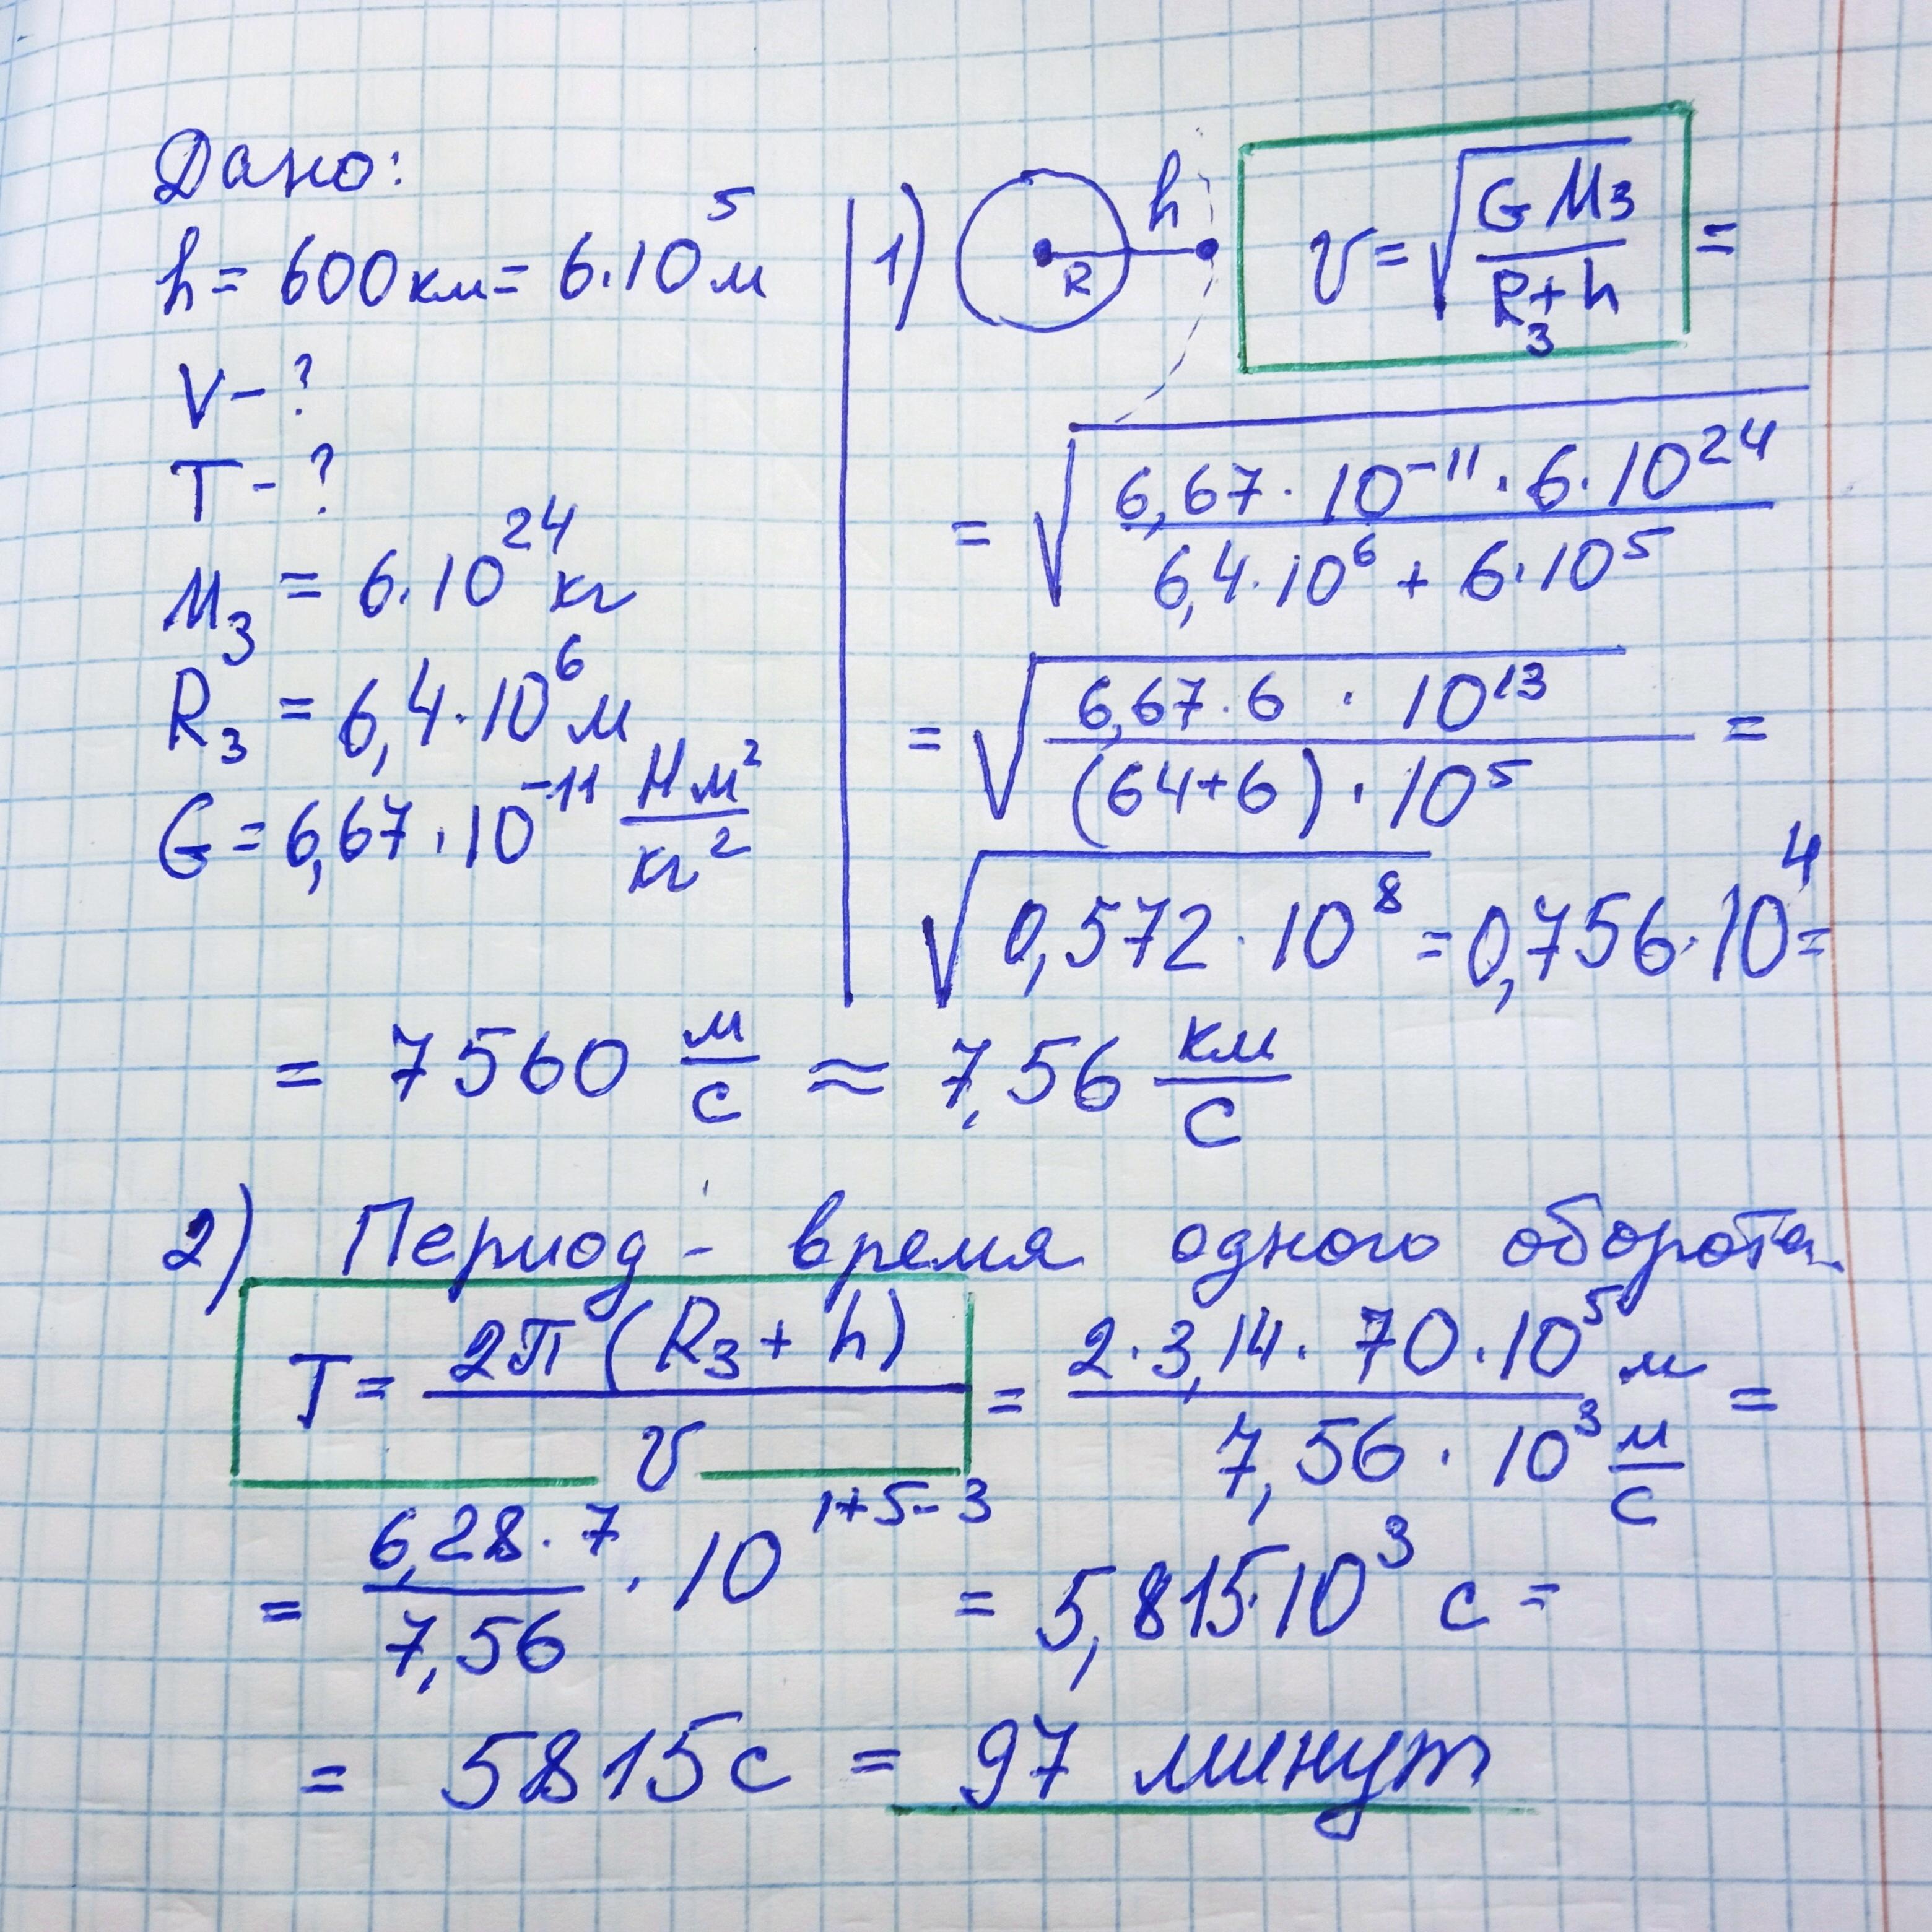 Дано:
h = 600 км = 6·10⁵ м
V – ?
T – ?
M₃ = 6·10²⁴ кг
R₃ = 6,4·10⁶ м
G = 6,67·10⁻¹¹ Нм²/кг²
1) R h v = √(GM₃/(R₃+h)) =
= √(6,67·10⁻¹¹·6·10²⁴/(6,4·10⁶ + 6·10⁵))
= √(6,67·6·10¹³/((64+6)·10⁵)) =
√(0,572·10⁸) = 0,756·10⁴ =
= 7560 м/с ≈ 7,56 км/с
2) Период - время одного оборота
T = 2π(R₃+h)/v = 2·3,14·70·10⁵ м/(7,56·10³ м/с) =
= 6,28·7/7,56 · 10¹⁺⁵⁻³ = 5,815·10³ с =
= 5815 с = 97 минут